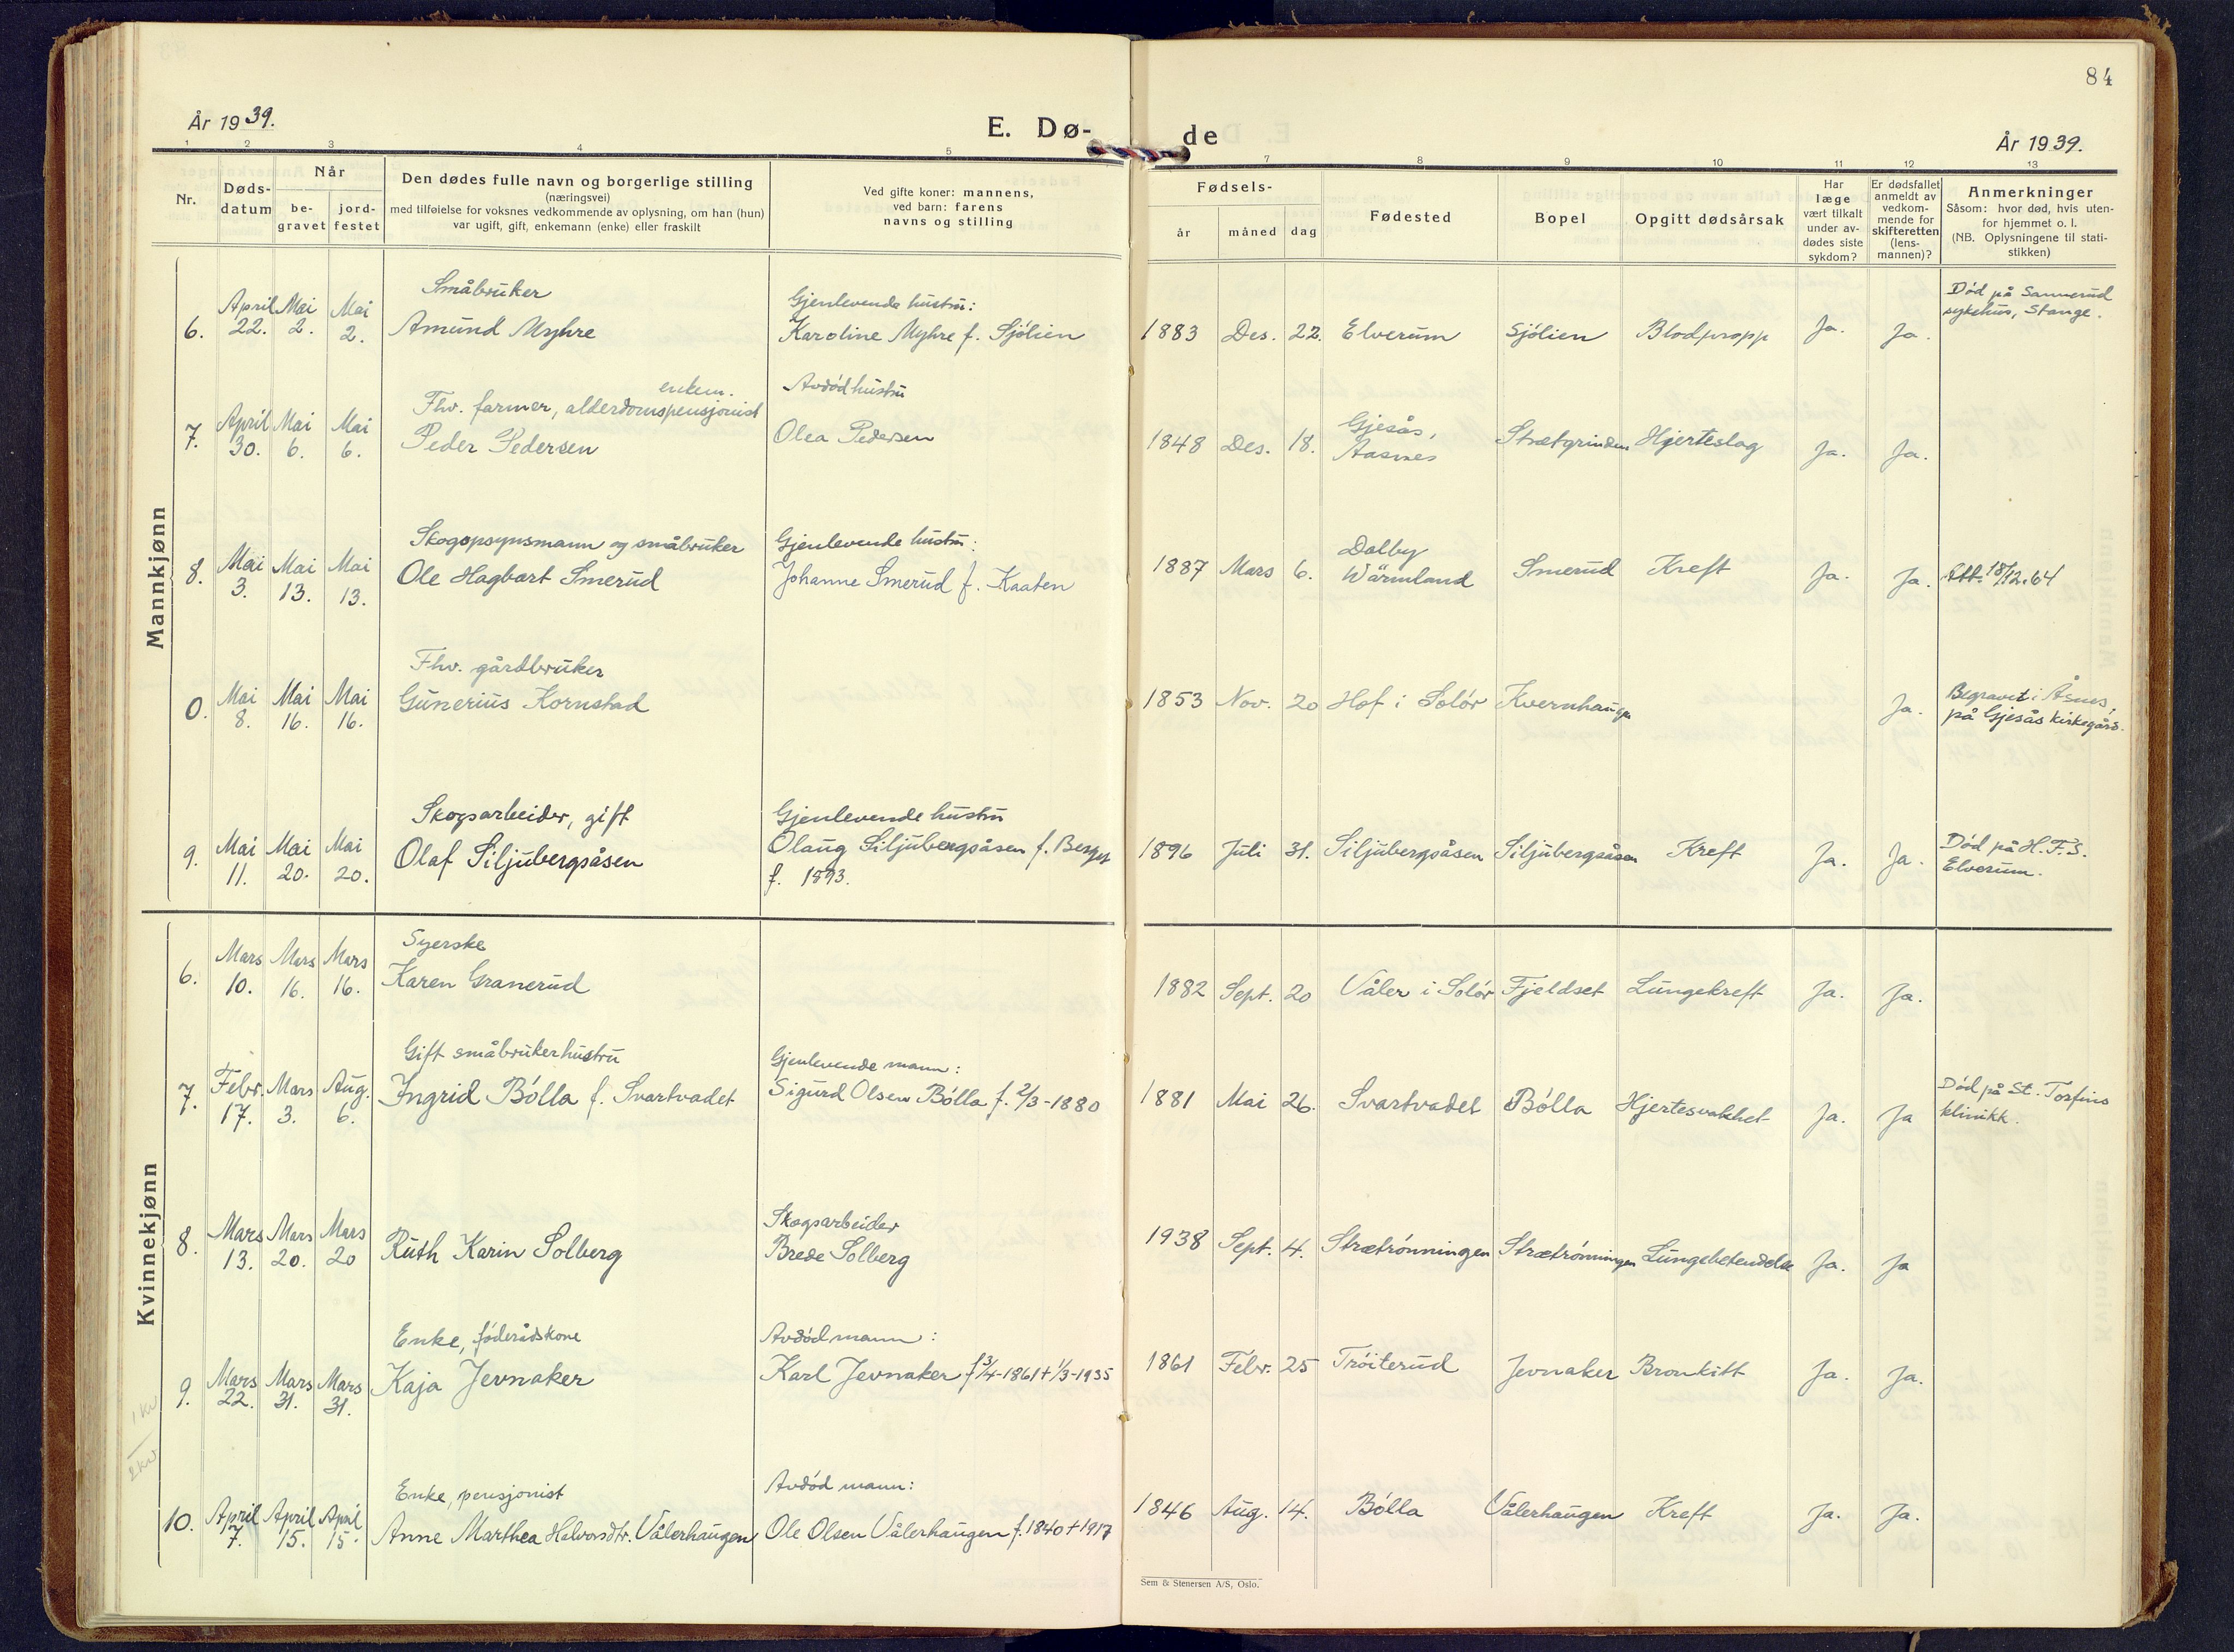 84
År 1939.
E. Dø-
de
År 1939.
1 2 3 4 5 7 8 9 10 11 12 13
Nr.
Døds-
datum
Når
be-
gravet
jord-
festet
Den dødes fulle navn og borgerlige stilling
(næringsvei)
med tilføielse for voksnes vedkommende av oplysning, om han (hun)
var ugift, gift, enkemann (enke) eller fraskilt
Ved gifte koner: mannens,
ved barn: farens
navns og stilling
Fødsels-
år måned dag
Fødested
Bopel
Opgitt dødsårsak
Har
læge
vært tilkalt
under av-
dødes siste
sykdom?
Er dødsfallet
anmeldt av
vedkom-
mende for
skifteretten
(lens-
mannen)?
Anmerkninger
Såsom: hvor død, hvis uten-
for hjemmet o. l.
(NB. Oplysningene til stati-
stikken)
Mannkjønn
Småbruker
Gjenlevende hustru:
Død på Sannerud
sykehus, Stange.
April Mai Mai
6. 22. 2. 2. Amund Myhre Karoline Myhre f. Sjölien 1883 Des. 22. Elverum Sjölien Blodpropp Ja. Ja.
enkem.
Fhv. farmer, alderdomspensjonist
Avdöd hustru
April Mai Mai
7. 30. 6. 6. Peder Pedersen Olea Pedersen 1848 Des. 18. Gjesås,
Aasnes
Strætgrinden Hjerteslag Ja. Ja.
Skogopsynsmann og småbruker
Gjenlevende hustru:
Mai Mai Mai
8. 3. 13. 13. Ole Hagbart Smerud Johanne Smerud f. Kaaten 1887 Mars 6. Dalby
Wärmland
Smerud Kreft Ja. Ja. Att. 18/12.64
Fhv. gårdbruker
Mai Mai Mai
0. 8. 16. 16. Gunerius Kornstad 1853 Nov. 20 Hof i Solör Kvernhaugen Ja. Begravet i Åsnes,
på Gjesås kirkegård.
Skogsarbeider, gift
Gjenlevende hustru
Mai Mai Mai
9. 11. 20. 20. Olaf Siljubergsåsen Olaug Siljubergsåsen f. Berger
f. 1893.
1896 Juli 31. Siljubergsåsen Siljubergsåsen Kreft Ja. Ja. Död på H.F.S.
Elverum.
Kvinnekjønn
Syerske
Mars Mars Mars
6. 10. 16. 16. Karen Granerud 1882 Sept. 20 Våler i Solör Fjeldset Lungekreft Ja. Ja.
Gift småbrukerhustru
Gjenlevende mann:
Febr. Mars Aug.
7. 17. 3. 6. Ingrid Bölla f. Svartvadet Sigurd Olsen Bölla f. 2/3-1880 1881 Mai 26. Svartvadet Bölla Hjertesvakhet Ja. Ja Död på St. Torfins
klinikk.
Skogsarbeider
Mars Mars Mars
8. 13. 20. 20 Ruth Karin Solberg Brede Solberg 1938 Sept. 4. Strætrönningen Strætrönningen Lungebetendelse Ja. Ja
Enke, föderådskone
Avdöd mann:
Mars Mars Mars
9. 22. 31. 31. Kaja Jevnaker Karl Jevnaker f 3/4-1861 + 1/3-1935 1861 Febr. 25 Tröiterud Jevnaker Bronkitt Ja. Ja.
1 kv
2 kv
Enke, pensjonist
Avdöd mann:
April April April
10. 7. 15. 15. Anne Marthea Halvorsdtr. Vålerhaugen Ole Olsen Vålerhaugen f. 1840 + 1917 1846 Aug. 14. Bölla Vålerhaugen Kreft Ja. Ja.
Sem & Stenersen A/S, Oslo.